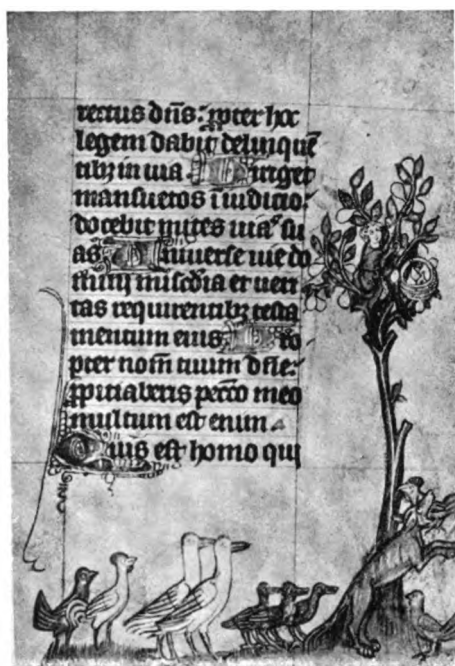 rectus dñs: ꝓpter hoc
legem dabit delinquē
tibꝫ in uia Diriget
mansuetos ī iudicio:
docebit mites uias su
as Uniuerse uie do
mini misc̄dia et ueri
tas requirentibꝫ testa
mentum eius Pro
pter nom̄ tuum dñe:
ꝓpitiaberis pecc̄o meo
multum est enim
Quis est homo qui